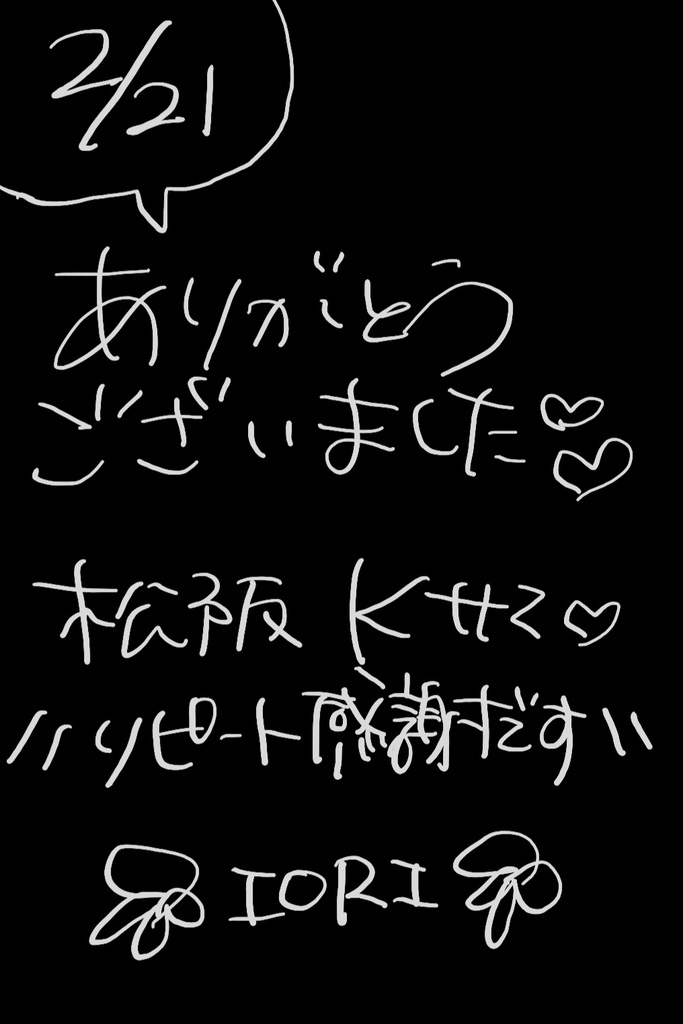 2/21
ありがとう
ございました♡♡
松阪 Kサマ♡
〃リピート感謝だす〃
IORI